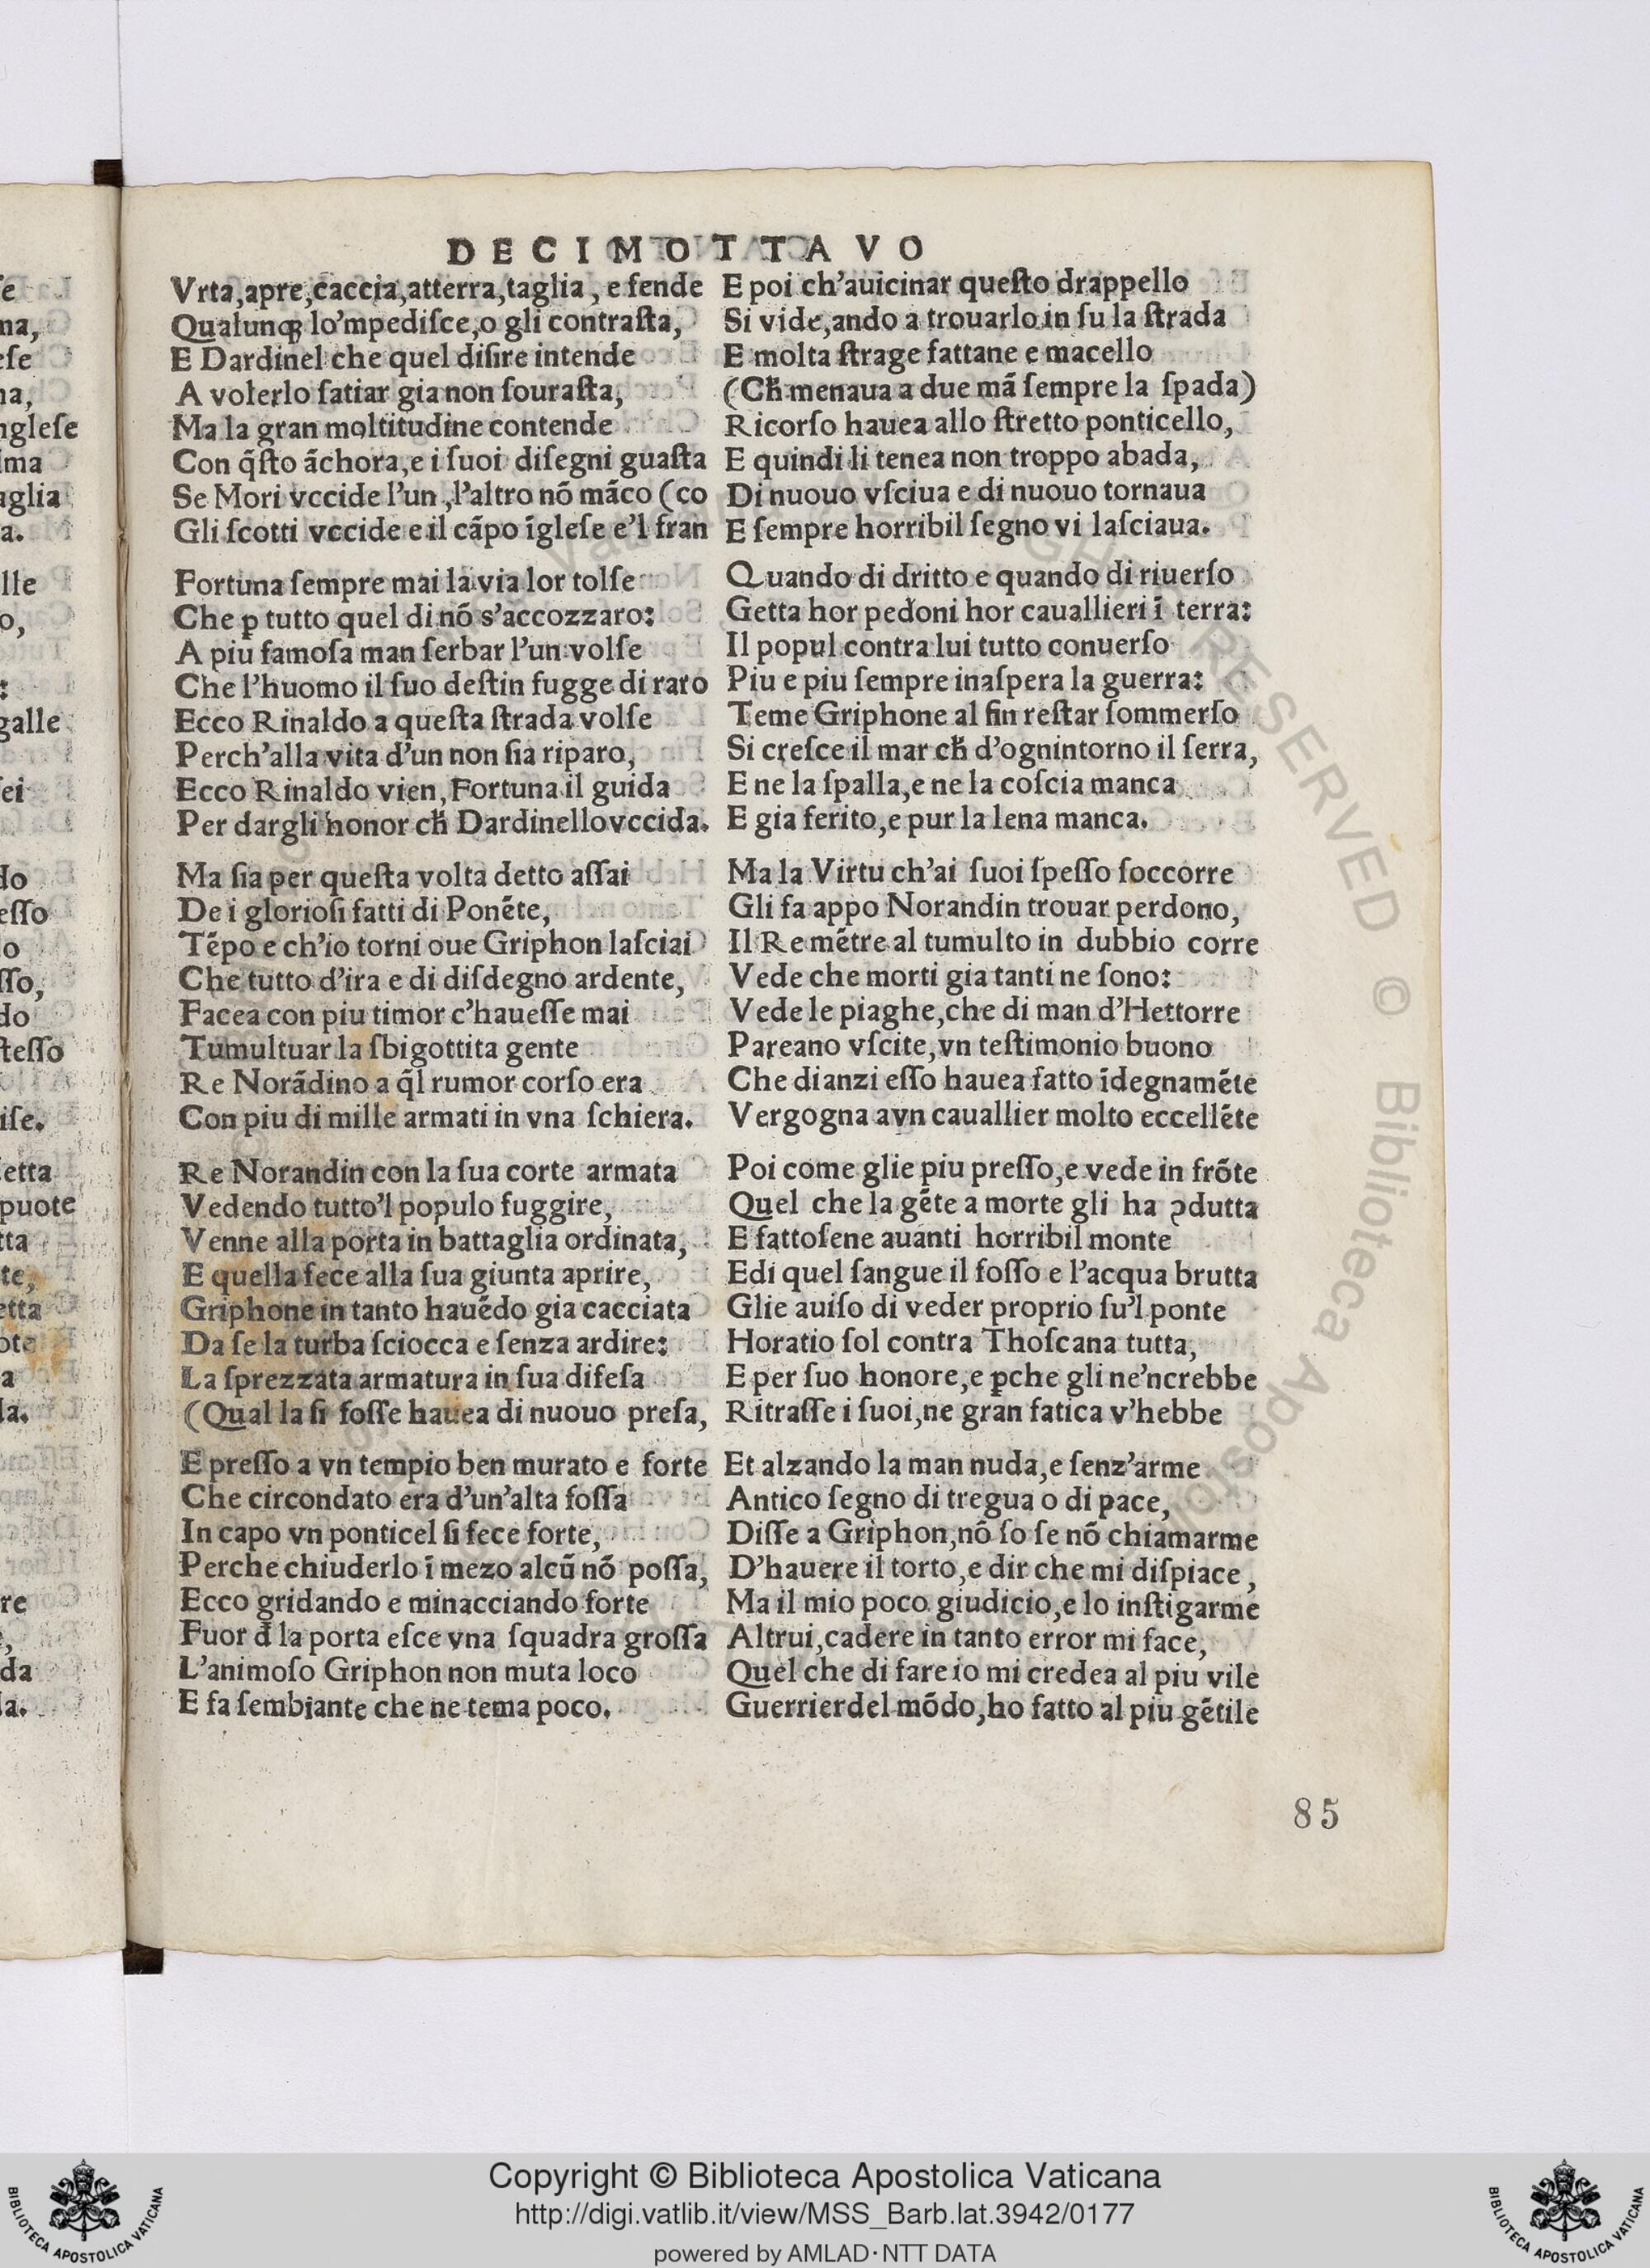 DECIMOTTAVO
Vrta,apre,caccia,atterra,taglia, e fende
Qualunqꝫ lo'mpediſce,o gli contraſta,
E Dardinel che quel diſire intende
A volerlo ſatiar gia non ſouraſta,
Ma la gran moltitudine contende
Con q̃ſto ãchora,e i ſuoi diſegni guaſta
Se Mori vccide l'un,l'altro nõ mãco (co
Gli ſcotti vccide e il cãpo ĩgleſe e'l fran
Fortuna ſempre mai la via lor tolſe
Che ꝑ tutto quel di nõ s'accozzaro:
A piu famoſa man ſerbar l'un volſe
Che l'huomo il ſuo deſtin fugge di raro
Ecco Rinaldo a queſta ſtrada volſe
Perch'alla vita d'un non ſia riparo,
Ecco Rinaldo vien, Fortuna il guida
Per dargli honor ch̃ Dardinello vccida.
Ma ſia per queſta volta detto aſſai
De i glorioſi fatti di Ponẽte,
Tẽpo e ch'io torni oue Griphon laſciai
Che tutto d'ira e di diſdegno ardente,
Facea con piu timor c'haueſſe mai
Tumultuar la ſbigottita gente
Re Norãdino a q̃l rumor corſo era
Con piu di mille armati in vna ſchiera.
Re Norandin con la ſua corte armata
Vedendo tutto'l populo fuggire,
Venne alla porta in battaglia ordinata,
E quella fece alla ſua giunta aprire,
Griphone in tanto hauẽdo gia cacciata
Da ſe la turba ſciocca e ſenza ardire:
La ſprezzata armatura in ſua difeſa
(Qual la ſi foſſe hauea di nuouo preſa,
E preſſo a vn tempio ben murato e forte
Che circondato era d'un'alta foſſa
In capo vn ponticel ſi fece forte,
Perche chiuderlo ĩ mezo alcũ nõ poſſa,
Ecco gridando e minacciando forte
Fuor d̃ la porta eſce vna ſquadra groſſa
L'animoſo Griphon non muta loco
E fa ſembiante che ne tema poco.
E poi ch'auicinar queſto drappello
Si vide,ando a trouarlo in ſu la ſtrada
E molta ſtrage fattane e macello
(Ch̃ menaua a due mã ſempre la ſpada)
Ricorſo hauea allo ſtretto ponticello,
E quindi li tenea non troppo abada,
Di nuouo vſciua e di nuouo tornaua
E ſempre horribil ſegno vi laſciaua.
Quando di dritto e quando di riuerſo
Getta hor pedoni hor cauallieri ĩ terra:
Il popul contra lui tutto conuerſo
Piu e piu ſempre inaſpera la guerra:
Teme Griphone al fin reſtar ſommerſo
Si creſce il mar ch̃ d'ognintorno il ſerra,
E ne la ſpalla,e ne la coſcia manca
E gia ferito,e pur la lena manca.
Ma la Virtu ch'ai ſuoi ſpeſſo ſoccorre
Gli fa appo Norandin trouar perdono,
Il Re mẽtre al tumulto in dubbio corre
Vede che morti gia tanti ne ſono:
Vede le piaghe,che di man d'Hettorre
Pareano vſcite,vn teſtimonio buono
Che dianzi eſſo hauea fatto ĩdegnamẽte
Vergogna avn cauallier molto eccellẽte
Poi come glie piu preſſo,e vede in frõte
Quel che la gẽte a morte gli ha ꝓdutta
E fattoſene auanti horribil monte
Edi quel ſangue il foſſo e l'acqua brutta
Glie auiſo di veder proprio ſu'l ponte
Horatio ſol contra Thoſcana tutta,
E per ſuo honore,e ꝑche gli ne'ncrebbe
Ritraſſe i ſuoi,ne gran fatica v'hebbe
Et alzando la man nuda,e ſenz'arme
Antico ſegno di tregua o di pace,
Diſſe a Griphon,nõ ſo ſe nõ chiamarme
D'hauere il torto,e dir che mi diſpiace,
Ma il mio poco giudicio,e lo inſtigarme
Altrui,cadere in tanto error mi face,
Quel che di fare io mi credea al piu vile
Guerrierdel mõdo,ho fatto al piu gẽtile
85
Copyright © Biblioteca Apostolica Vaticana
http://digi.vatlib.it/view/MSS_Barb.lat.3942/0177
powered by AMLAD·NTT DATA
BIBLIOTECA APOSTOLICA VATICANA
BIBLIOTECA APOSTOLICA VATICANA